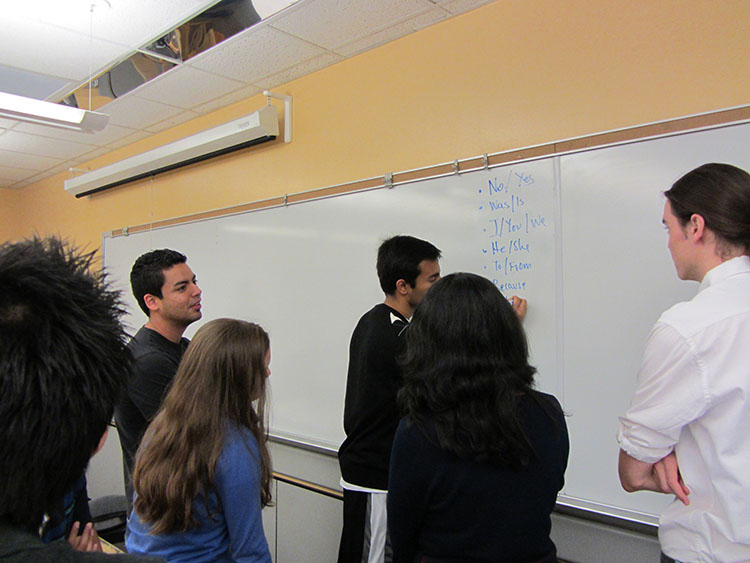 • No/Yes
• Was/Is
• I/You/We
• He/She
• To/From
• Because